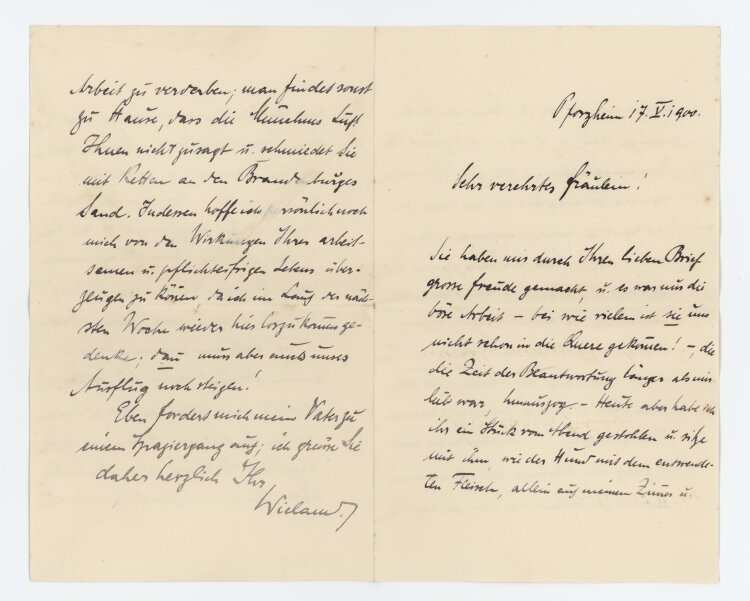 Pforzheim 17.V.1900.
Sehr verehrtes Fräulein!
Sie haben mir durch Ihren lieben Brief
grosse Freude gemacht, u. es war nur die
böse Arbeit – bei wie vielem ist sie uns
nicht schon in die Quere gekomen! –, die
die Zeit der Beantwortung länger als mir
lieb war, hinauszog. – Heute aber habe ich
ihr ein Stück vom Abend gestohlen u. sitze
mit ihm, wie der Hund mit dem entwende-
ten Fleisch, allein auf meinem Zimer u.
Arbeit zu verderben; man findet sonst
zu Hause, dass die Münchner Luft
Ihnen nicht zusagt u. schmiedet Sie
mit Ketten an den Brandenburger
Sand. Indessen hoffe ich persönlich noch
mich von den Wirkungen Ihres arbeit-
samen u. pflichteifrigen Lebens über-
zeugen zu könen, da ich im Lauf der näch-
sten Woche wieder hier loszukomen ge-
denke; dan muss aber auch unser
Ausflug noch steigen!
Eben fordert mich mein Vater zu
einem Spaziergang auf; ich grüsse Sie
daher herzlich Ihr
Wieland.